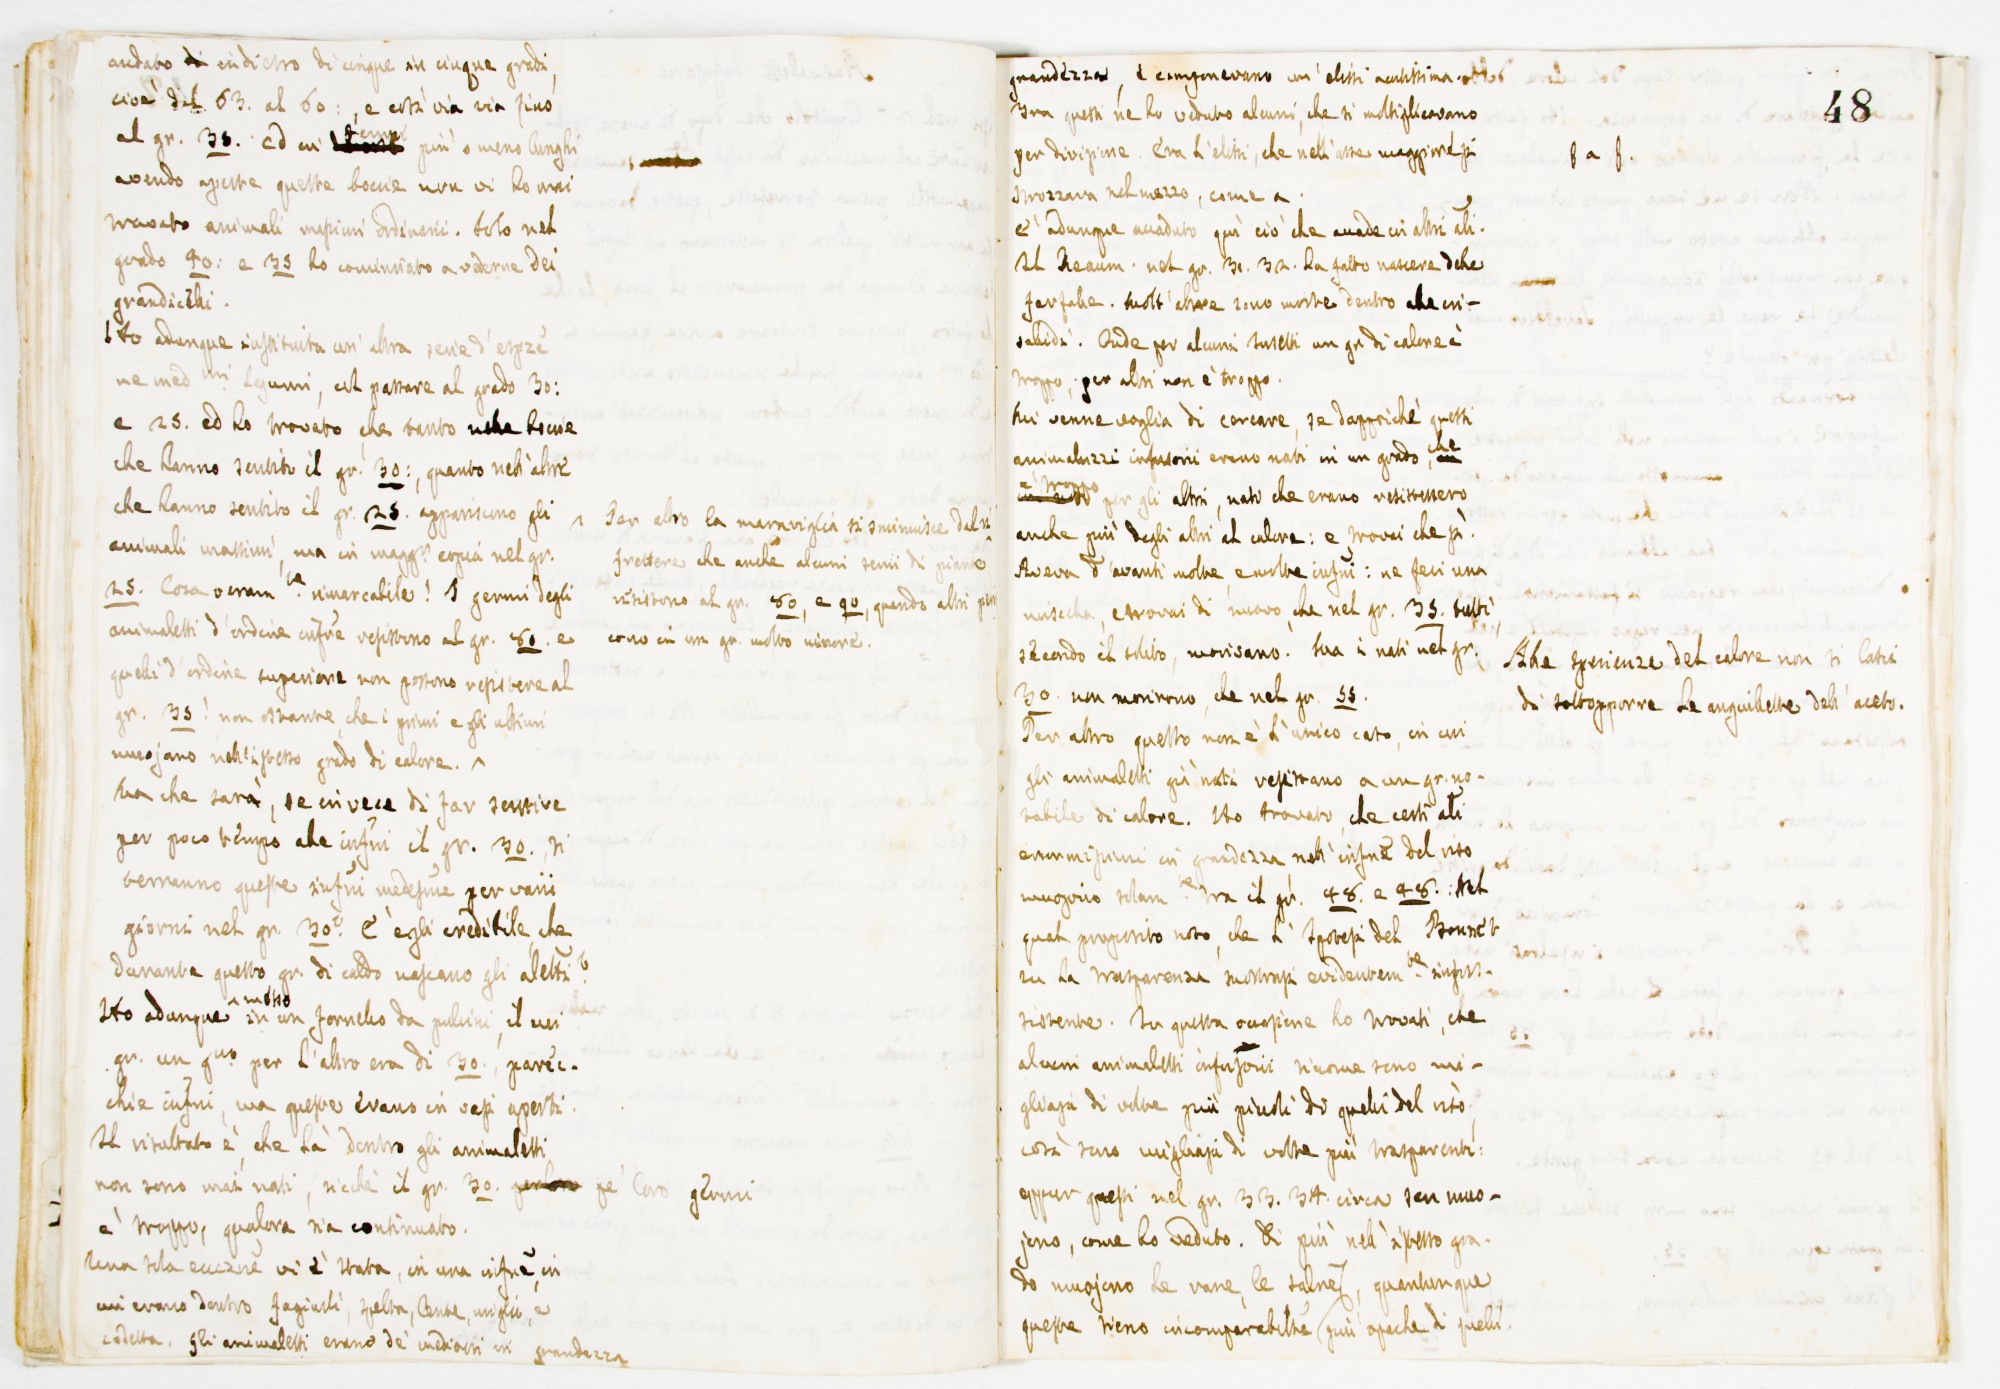 andato di indietro di cinque in cinque gradi,
cioè dal 63. al 60:, e così via via fino
al gr. 35. Ed in tempi più o meno lunghi
avendo aperte queste bocie non vi ho mai
trovato animali massimi ordinarii. Solo nel
grado 40: e 35 ho cominciato a vederne dei
grandicelli.
Ho adunque instituita un'altra serie d'esp̃ze
ne med.mi legumi, col passare al grado 30:
e 25. ed ho trovato che tanto nelle bocie
che hanno sentito il gr. 30:, quanto nell'altre
che hanno sentito il gr. 25. appariscono gli
animali massimi, ma in magg.r copia nel gr.
25. Cosa veram.te rimarcabile! I germi degli
animaletti d'ordine infre resistono al gr. 80. e
quelli d'ordine superiore non possono resistere al
gr. 35! non ostante che i primi e gli ultimi
muojano nell'istesso grado di calore. ^
Ma che sarà, se invece di far sentire
per poco tempo alle infuni il gr. 30., si
terranno queste infuni medesime per varii
giorni nel gr. 30? È egli credibile, che
durante questo gr. di caldo nascano gli aletti?
Ho adunque messo in un fornello da pulcini, il cui
gr. un g.no per l'altro era di 30., parec-
chie infuni, ma queste erano in vasi aperti.
Il risultato è, che là dentro gli animaletti
non sono mai nati, sicchè il gr. 30. pe' loro germi
è troppo, qualora sia continuato.
Una sola eccezne vi è stata, in una infne, in
cui erano dentro fagiuoli, spelta, lente, miglio, e
codetta. Gli animaletti erano de' mediocri in grandezza
^ Per altro la maraviglia si sminuisce dal ri
flettere che anche alcuni semi di piante
resistono al gr. 80, e 90, quando altri peri
cono in un gr. molto minore.
48
grandezza, e componevano un'elissi acutissima.
Tra questi ne ho veduto alcuni, che si moltiplicavano
per divisione. Era l'elissi, che nell'asse maggiore si
strozzava nel mezzo, come a.
8 a 8.
È adunque accaduto quì ciò che accade in altri ali.
Il Reaum. nel gr. 31. 32. ha fatto nascere delle
farfalle. Molt'altre sono morte dentro alle cri-
salidi. Onde per alcuni insetti un gr. di calore è
troppo, per altri non è troppo.
Mi venne voglia di cercare, se dappoichè questi
animaluzzi infusorii erano nati in un grado, che
è troppo per gli altri, nati che erano resistessero
anche più degli altri al calore: e trovai che sì.
Aveva d'avanti molte e molte infuni: ne feci una
miscella, e trovai di nuovo, che nel gr. 35. tutti,
secondo il solito, morivano. Ma i nati nel gr.
30. non morirono, che nel gr. 55.
Alle sperienze del calore non si lasci
di sottopporre le anguillette dell'aceto.
Per altro questo non è l'unico caso, in cui
gli animaletti già nati resistano a un gr. no-
tabile di calore. Ho trovato, che certi ali
enormissimi in grandezza nell'infne del riso
muojono solam.te tra il gr. 48. e 48.: Nel
qual proposito noto, che l'ipotesi del Bonnet
su la trasparenza mostrasi evidentem.te insussi-
stente. In questa occasione ho trovati, che
alcuni animaletti infusorii siccome sono mi-
gliaja di volte più piccoli di quelli del riso,
così sono migliaja di volte più trasparenti:
eppur questi nel gr. 33. 34. circa sen muo-
jono, come ho veduto. Di più nell'istesso gra-
do muojono le rane, le salne, quantunque
queste sieno incomparabilte più opache di quelli.